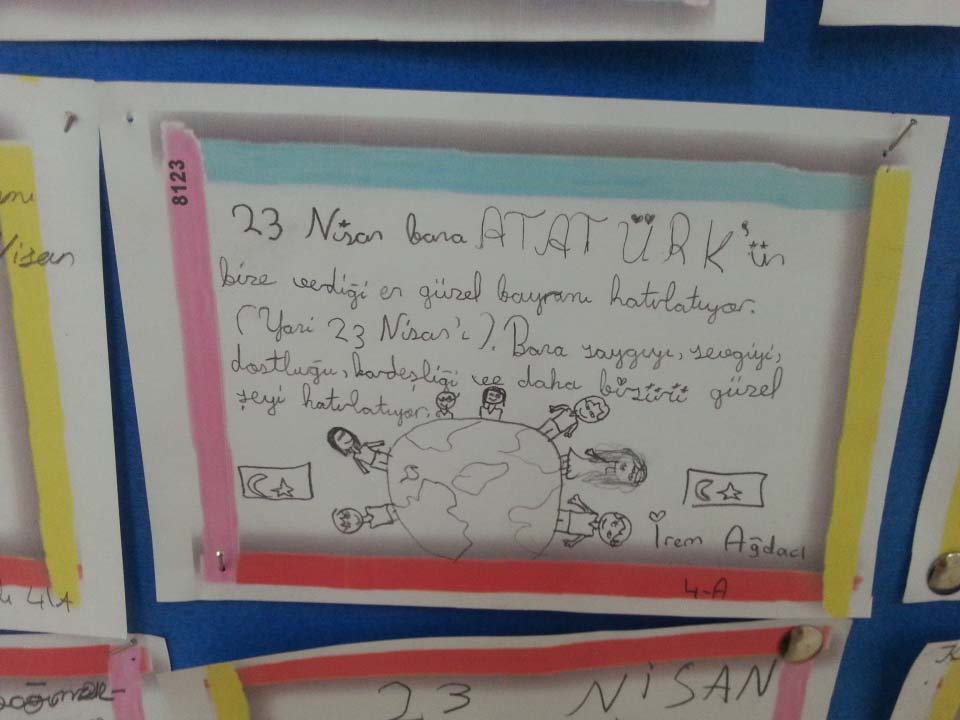 8123
23 Nisan bana ATATÜRK'ün
bize verdiği en güzel bayramı hatırlatıyor.
(Yani 23 Nisan'ı). Bana saygıyı, sevgiyi,
dostluğu, kardeşliği ve daha bisürü güzel
şeyi hatırlatıyor.
İrem Ağdacı
4-A
Nisan
4/A
23 NİSAN